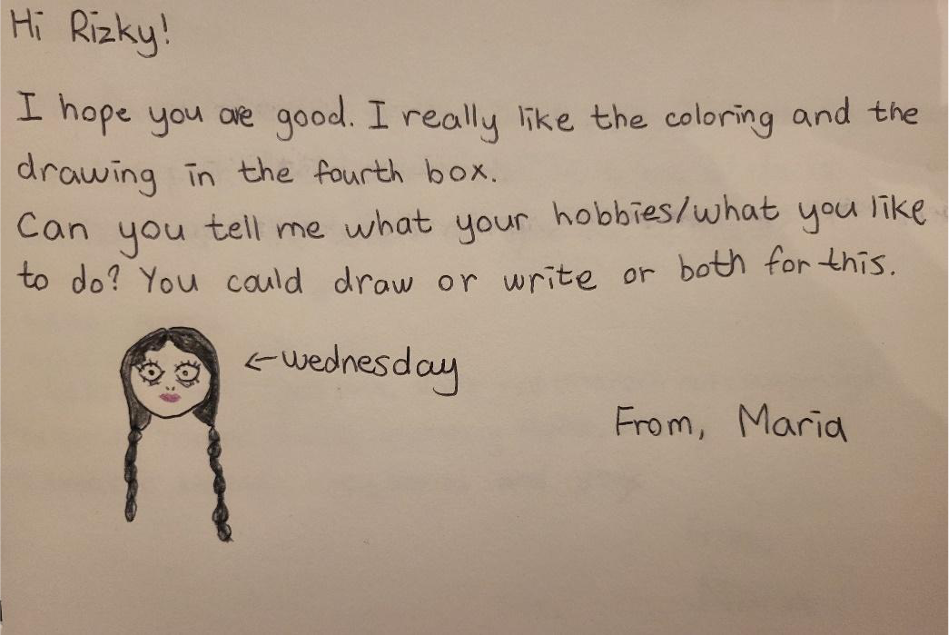 Hi Rizky!
I hope you are good. I really like the coloring and the
drawing in the fourth box.
Can you tell me what your hobbies/what you like
to do? You could draw or write or both for this.
←wednesday
From, Maria